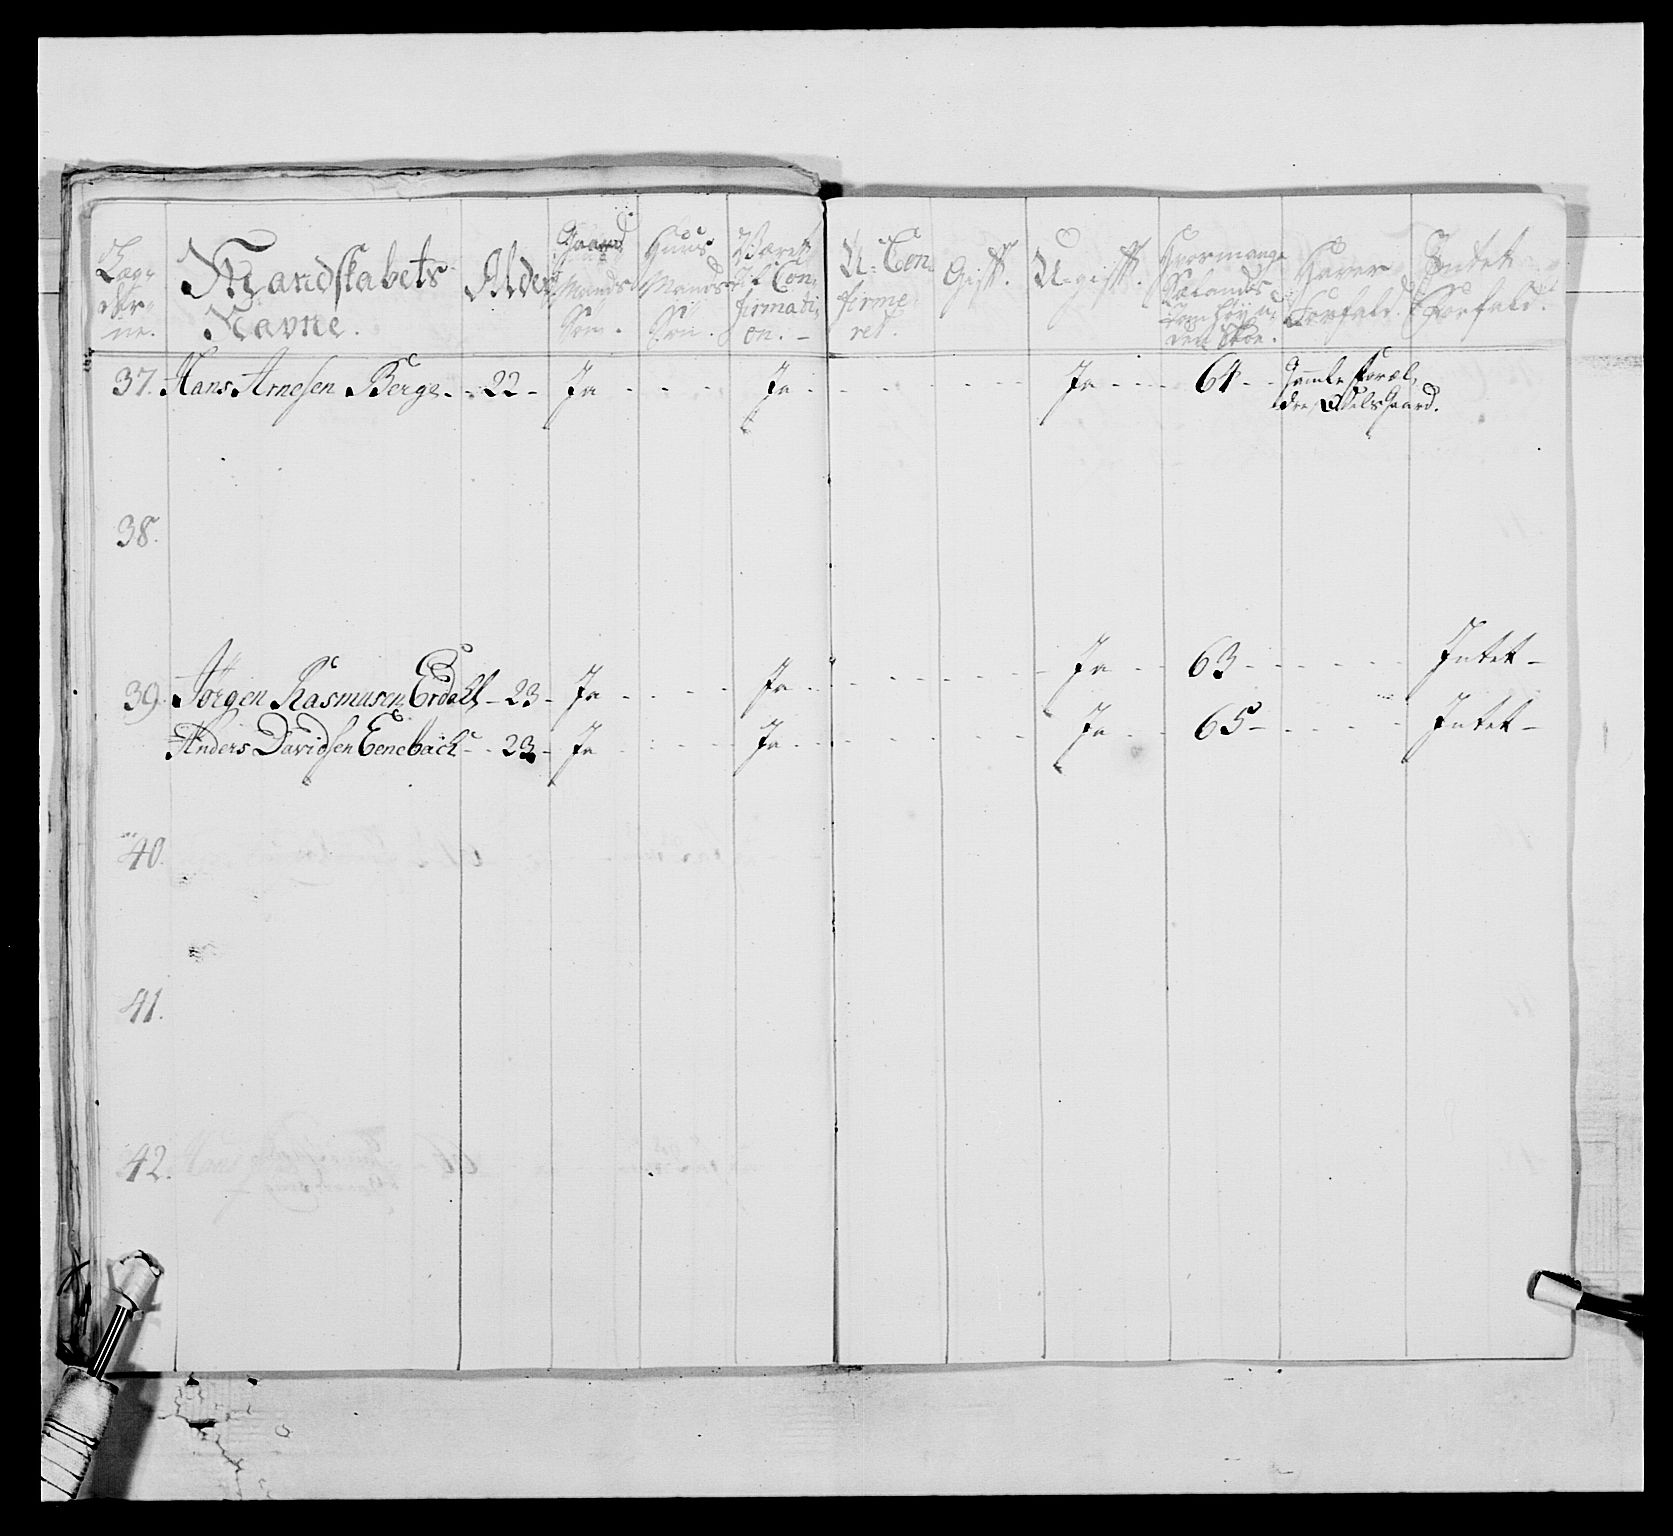 Læg-
derne.
Mandskabets
Navne.
Alder
Gaard
Mands
Søn.
Huus
Mands
Søn.
Været
til Con-
firmati-
on.
U-Con-
firme-
ret.
Gift.
U-gift.
Hvormange
Sælands
Tom: høy u-
den Skoe.
Haver
Forfald.
Intet
Forfald.
37. Hans Arnesen Berge - 22 - Ja Ja Ja 64 Gamle foræl-
dre, Odels Gaard.
38.
39. Jörgen Rasmusen Erdahl - 23 - Ja Ja Ja 63 Intet
Anders Davidsen Eenebach - 23 - Ja Ja Ja 65 Intet
40.
41.
42.